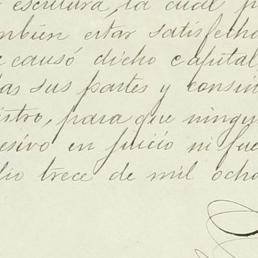 escritura, la cual
mbien estar satisfecho
causó dicho capital,
as sus partes y consin
istro, para que ningu
esivo en juicio ni fue
lio trece de mil ocho